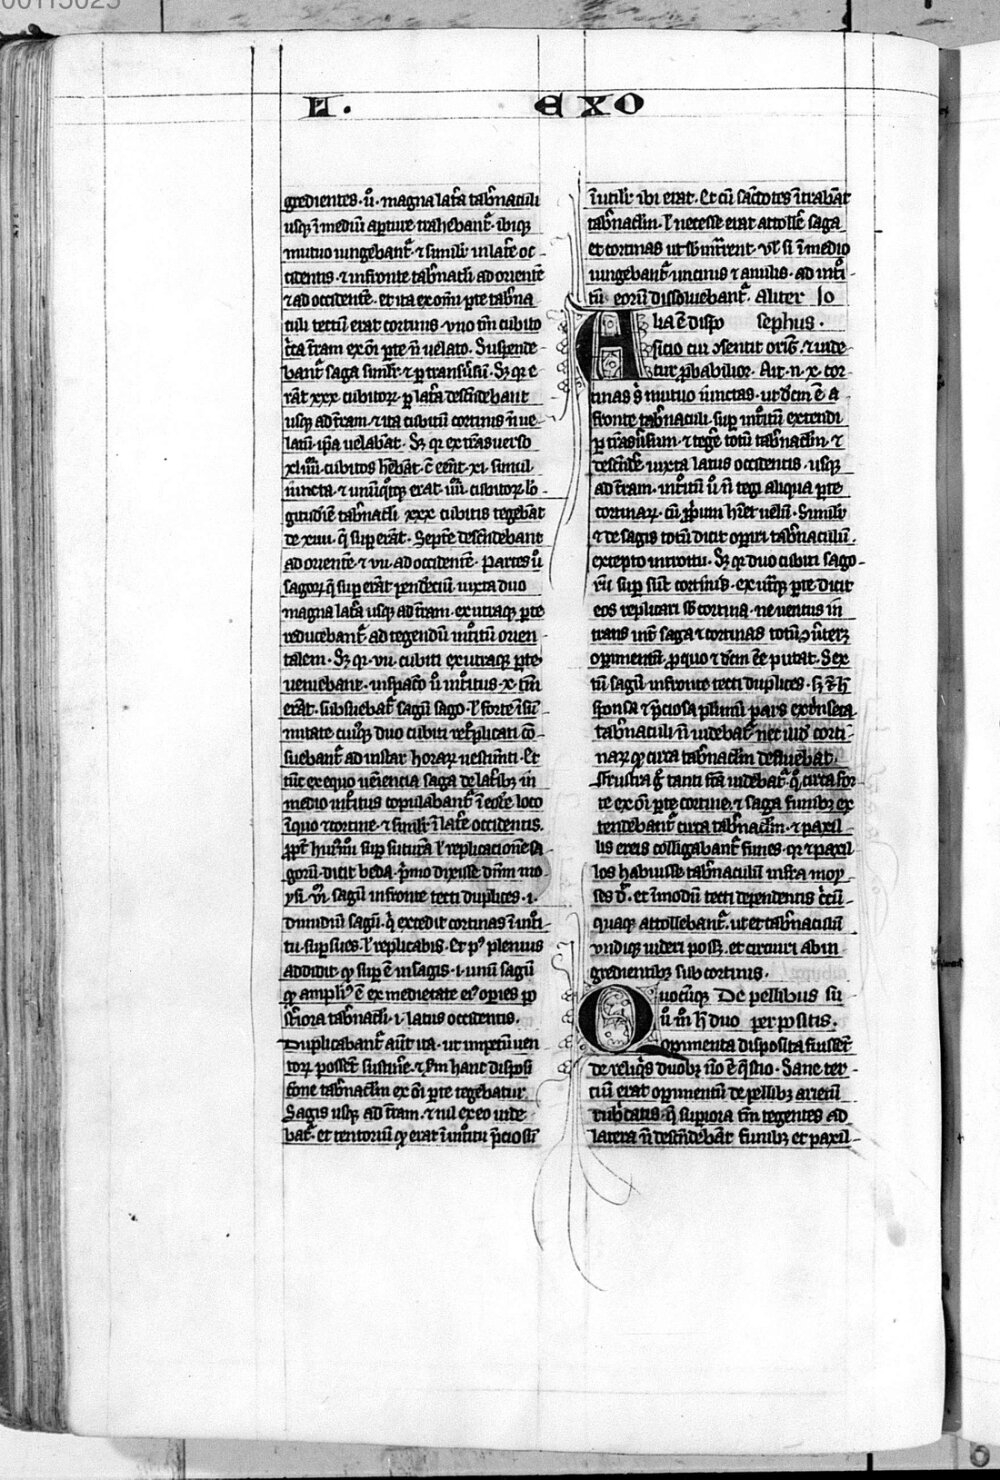 00113025
H. EXO
gredientes. ů. magna lat̃a tab̃naculi
usq; ī mediū aperture trahebant᷑. ibiq;
mutuo iungebant᷑. ⁊ simil̓r in lat̃e oc-
cidentis. ⁊ in fronte tab̃nacl̓i ad oriente
⁊ ad occidentē. et ita ex om̄i ꝑte tab̃na
culi tectū erat cortinis. uno tm̄ cubito
c̓ca t̓ram ex ōi ꝑte n̄ uelato. Suspende-
bant᷑ saga simil̓r ⁊ ꝑ transūsū. Sꝫ qr e
rāt xxx cubitoꝝ. ꝑ lat̃a descēdebant
usq; ad t̓ram. ⁊ ita cubitū cortinis n̄ ue-
latū ip̄a uelabāt. Sꝫ qr ex trāsuerso
xl iiii. cubitos h̄ebāt. c̄ eēnt. xi. simul
iuncta. ⁊ unū qd̓q; erat. iiii. cubitoꝝ lō-
gitudīē tab̃nacl̓i xxx cubitis tegebāt
de xiiii. q̄ suꝑ erāt. Septē descēdebant
ad oriente. ⁊ vii. ad occidente. Partes ů
sagoꝝ q̄ suꝑ erāt pendēciū. iuxta duo
magna lat̃a usq; ad t̓ram. ex utraq; ꝑte
reducebant᷑ ad tegendū int̓oitū orien-
talem. Sꝫ qr. vii. cubiti ex utraq; ꝑte
ueniebant. in spacō ů int̓oitus. x. tm̄
erāt. substuebat᷑ sagū sago. ł forte ī sū
mitate cuiusq; duo cubiti ret̓plicati cō-
suebant᷑ ad instar horaꝝ uestim̄ti. Et
tūc ex equo uēiencia saga de lat̓ibꝫ in
medio int̓oitus copulabant᷑ ī eodē loco
ī quo ⁊ cortine. ⁊ simil̓r ī lat̃e occidentis.
ꝓpt̓ hui᷒mōi suꝑ sutura ł replicacionē sa
goꝝ dicit beda. p̓mo dixisse dn̄m mo-
ysi. vi. sagū in fronte tecti duplices. i.
dimidiū sagū. qd̓ excedit cortinas ī int̓oi-
tu. suꝑ sues. ł replicabis. Et p᷒ plenius
addidit. qd̓ suꝑ ē in sagis. i. unū sagū
qd̓ ampli᷒ ē ex medietate ei᷒ opies po
st̓iora tab̃nacl̓i. i. latus occidentis.
Duplicabant᷑ aūt ita. ut impetū uen
toꝝ possēt sustinē. ⁊ s̄m hanc disposi
cionē tab̃naclm̄ ex ōi ꝑte tegebatur
Sagis usq; ad t̓ram. ⁊ nil ex eo uide
bat᷑. et tentoriū qd̓ erat ī int̓oitu p̄ciosū
īutilit̓ ibi erat. Et cū sac̓dotes ītrabāt
tab̃naclm̄. ł necesse erat attollē saga
et cortinas ut sb̓int̓rent. ul̓ si ī medio
iungebant᷑ uncinis ⁊ anulis. ad int̓oi-
tū eoꝝ dissoluebant᷑. Aliter Jo
Alia ē dispo sephus.
sicio cui ↄsentit orig̃. ⁊ uide-
tur ꝓbabilior. Ait. n̄. x. cor-
tinas s̓ mutuo iunctas. ut dc̄m ē a
fronte tab̃naculi. suꝑ int̓oitū extendi
ꝑ trāsūsum. ⁊ tegē totū tab̃naclm̄. ⁊
descēdē iuxta latus occidentis. usq;
ad t̓ram. int̓oitū ů n̄ tegi aliqua ꝑte
cortinaꝝ. cū ꝓpium h̄ret uelū. Similit̓
⁊ de sagis totū dicit oꝑiri tab̃naculū.
excepto introitu. Sꝫ qr duo cubiti sago-
rū suꝑ sūt cortinis. ex ut̓q; ꝑte dicit
eos replicari sb̓ cortina. ne uentus in
trans int̓ saga ⁊ cortinas totū ↄūteret
oꝑimentū. ꝓ quo ⁊ dc̄m eē putat. Sex
tū sagū in fronte tecti duplices. sꝫ ⁊ h̄
sponsa ⁊ p̄ciosa plurimū pars ext̓nseca
tab̃naculi n̄ uidebat᷑. nec illd̓ corti-
naꝝ qd̓ circa tab̃naclm̄ defluebat.
Frustra g̊ tanti fc̄a uidebat᷑. qd̓ circa for
te ex ōi ꝑte cortine. ⁊ saga funibꝫ ex
tendebant᷑ circa tab̃naclm̄. ⁊ paxil
lis ereis colligabant᷑ funes. qr ⁊ paxil
los habuisse tab̃naculū infra moy
ses d̓r. et ī modū tecti dependentis c̓cū-
quaq; attollebant᷑. ut et tab̃naculū
undiq; uideri poss̓. et circuiri ab in
gredientibꝫ sub cortinis.
Quocūq; De pellibus su
ů m̄ h̄ duo perpositis.
opimenta disposita fuissēt
de reliq̓s duobꝫ n̄o ē q̄stio. Sane ter-
ciū erat oꝑimentū de pellibꝫ arietū
rub̓catis. q̄ supiora tm̄ tegentes ad
latera n̄ descēdebāt. funibꝫ et paxil-